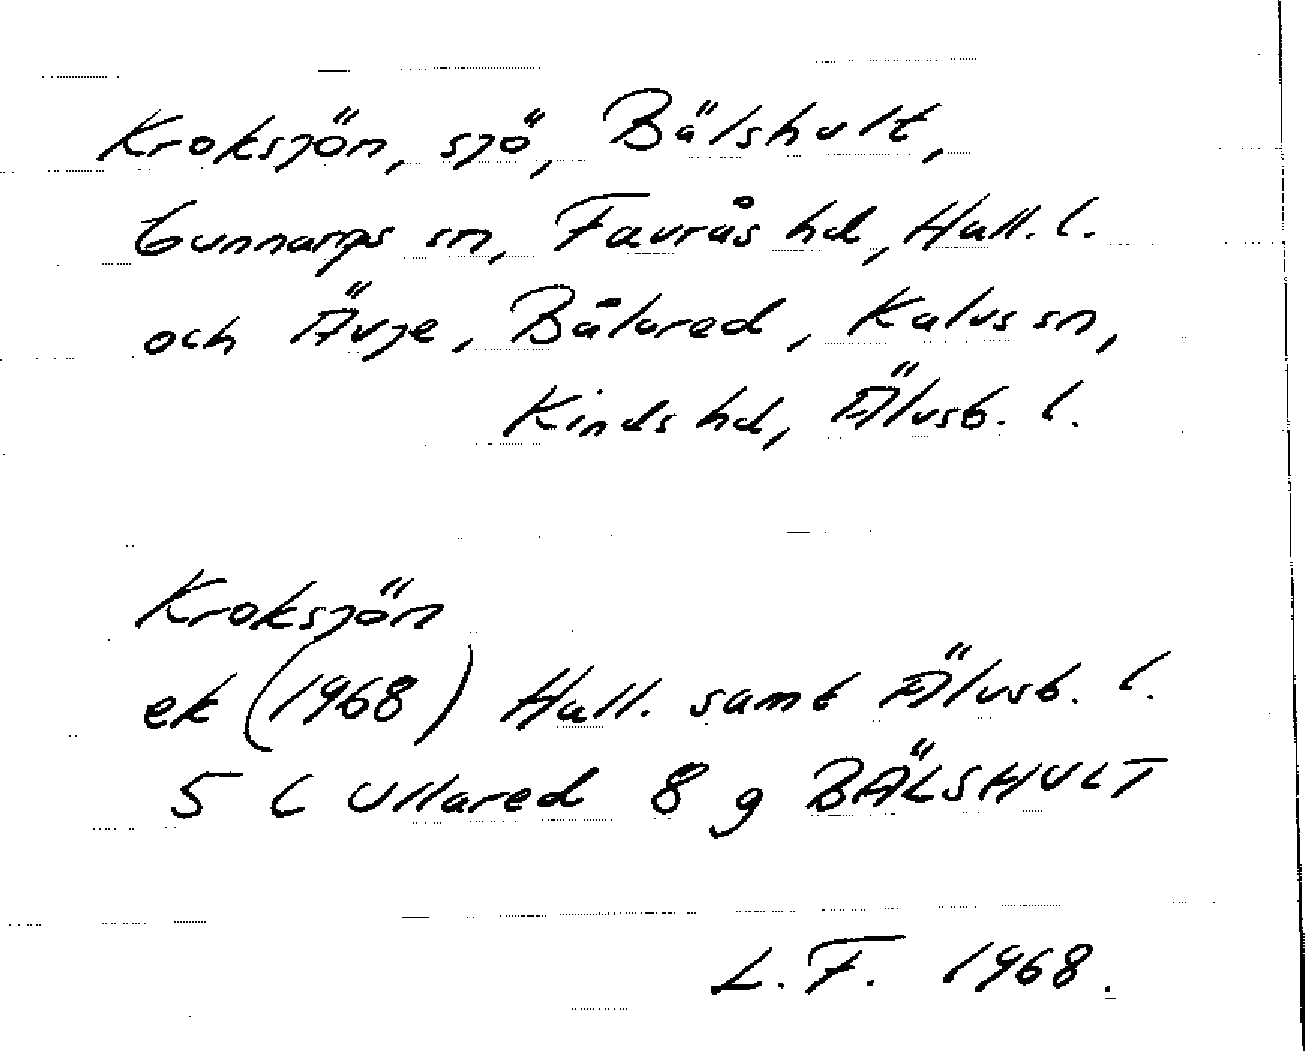 Kroksjön, sjö, Bälshult,
Gunnarps sn, Faurås hd, Hall. l.
och Ävje, Bålared, Kalvs sn,
Kinds hd, Älvsb. l.
Kroksjön
ek (1968) Hall. samt Älvsb. l.
5 C Ullared 8 g BÄLSHULT
L. F. 1968.